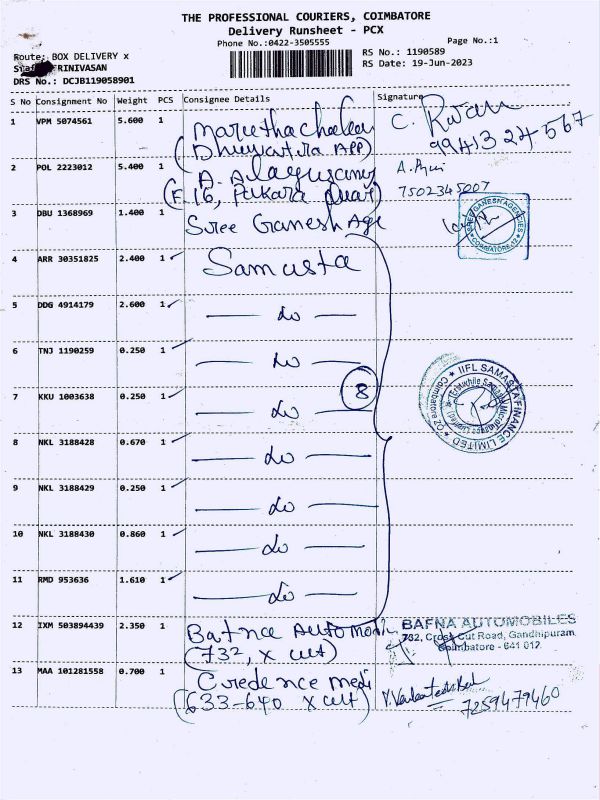 THE PROFESSIONAL COURIERS, COIMBATORE
Delivery Runsheet - PCX
Phone No.:0422-3505555
Page No.:1
Route: BOX DELIVERY x
RS No.: 1190589
RINIVASAN
RS Date: 19-Jun-2023
DRS No.: DCJB119058901
S No Consignment No Weight PCS Consignee Details Signature
1 VPM 5074561 5.600 1
C.
99413 24567
2 POL 2223012 5.400 1
A.
7502345007
3 DBU 1368969 1.400 1 Sree Ganesh Age
SREE GANESH AGENCIES
COIMBATORE-12
4 ARR 30351825 2.400 1 Samasta
5 DDG 4914179 2.600 1 — do —
6 TNJ 1190259 0.250 1 — do —
7 KKU 1003638 0.250 1 — do —
8
IIFL SAMASTA FINANCE LIMITED
Coimbatore
8 NKL 3188428 0.670 1 — do —
9 NKL 3188429 0.250 1 — do —
10 NKL 3188430 0.860 1 — do —
11 RMD 953636 1.610 1 — do —
12 IXM 503894439 2.350 1 Bafna Automobi
(732, x cut)
BAFNA AUTOMOBILES
732, Cross Cut Road, Gandhipuram
Coimbatore - 641 012.
13 MAA 101281558 0.700 1 Credence medi
(633-640 x cut)
7259479460